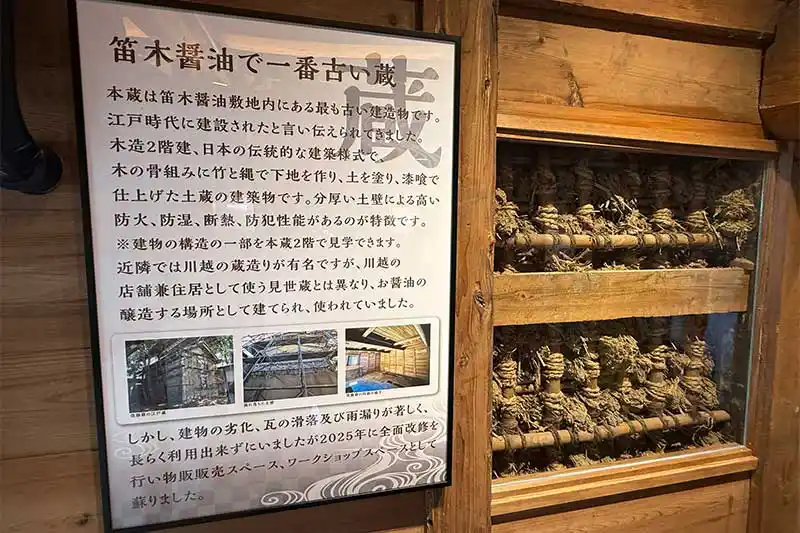 笛木醤油で一番古い蔵
蔵
本蔵は笛木醤油敷地内にある最も古い建造物です。
江戸時代に建設されたと言い伝えられてきました。
木造2階建、日本の伝統的な建築様式で、
木の骨組みに竹と縄で下地を作り、土を塗り、漆喰で
仕上げた土蔵の建築物です。分厚い土壁による高い
防火、防湿、断熱、防犯性能があるのが特徴です。
※建物の構造の一部を本蔵2階で見学できます。
近隣では川越の蔵造りが有名ですが、川越の
店舗兼住居として使う見世蔵とは異なり、お醤油の
醸造する場所として建てられ、使われていました。
しかし、建物の劣化、瓦の滑落及び雨漏りが著しく、
長らく利用出来ずにいましたが2025年に全面改修を
行い物販販売スペース、ワークショップスペースとして
蘇りました。